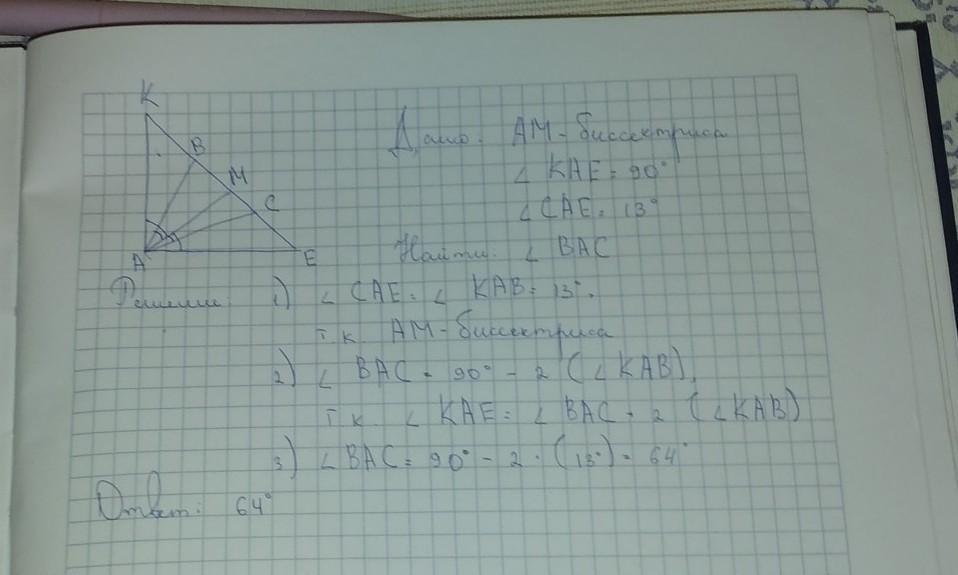 K
B
M
C
A
E
Дано: AM - биссектриса
∠ KAE = 90°
∠ CAE = 13°
Найти: ∠ BAC
Решение 1) ∠ CAE = ∠ KAB = 13°.
т.к. AM - биссектриса
2) ∠ BAC = 90° - 2 (∠ KAB),
т.к. ∠ KAE = ∠ BAC + 2 (∠KAB)
3) ∠ BAC = 90° - 2 · (13°) = 64°
Ответ: 64°